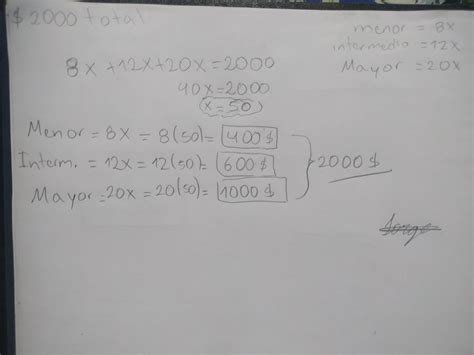 $2000 total
menor = 8x
intermedio = 12x
Mayor = 20x
8x+12x+20x=2000
40x=2000
x=50
Menor = 8x = 8(50)= 400$
Interm. = 12x = 12(50)= 600$
Mayor = 20x = 20(50)= 1000$
2000$
Jorge